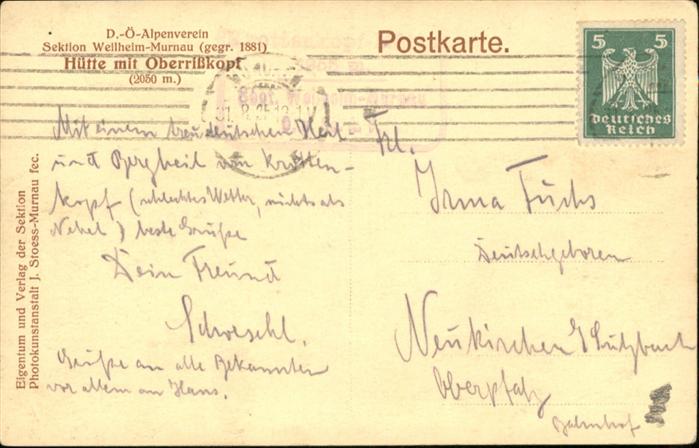 D.-Ö-Alpenverein
Sektion Weilheim-Murnau (gegr. 1881)
Hütte mit Oberrißkopf
(2050 m.)
Postkarte.
5 5
Deutsches
Reich
Mit einem treudeutschen Heil
und Bergheil vom Krotten-
kopf (schlechtes Wetter, nichts als
Nebel) beste Grüße
Dein Freund
Grüße an alle Bekannten
vor allem an Hans.
Frl.
Irma Fuchs
Neukirchen b Sulzbach
Oberpfalz
Bahnhof
Eigentum und Verlag der Sektion
Photokunstanstalt J. Stoess-Murnau fec.